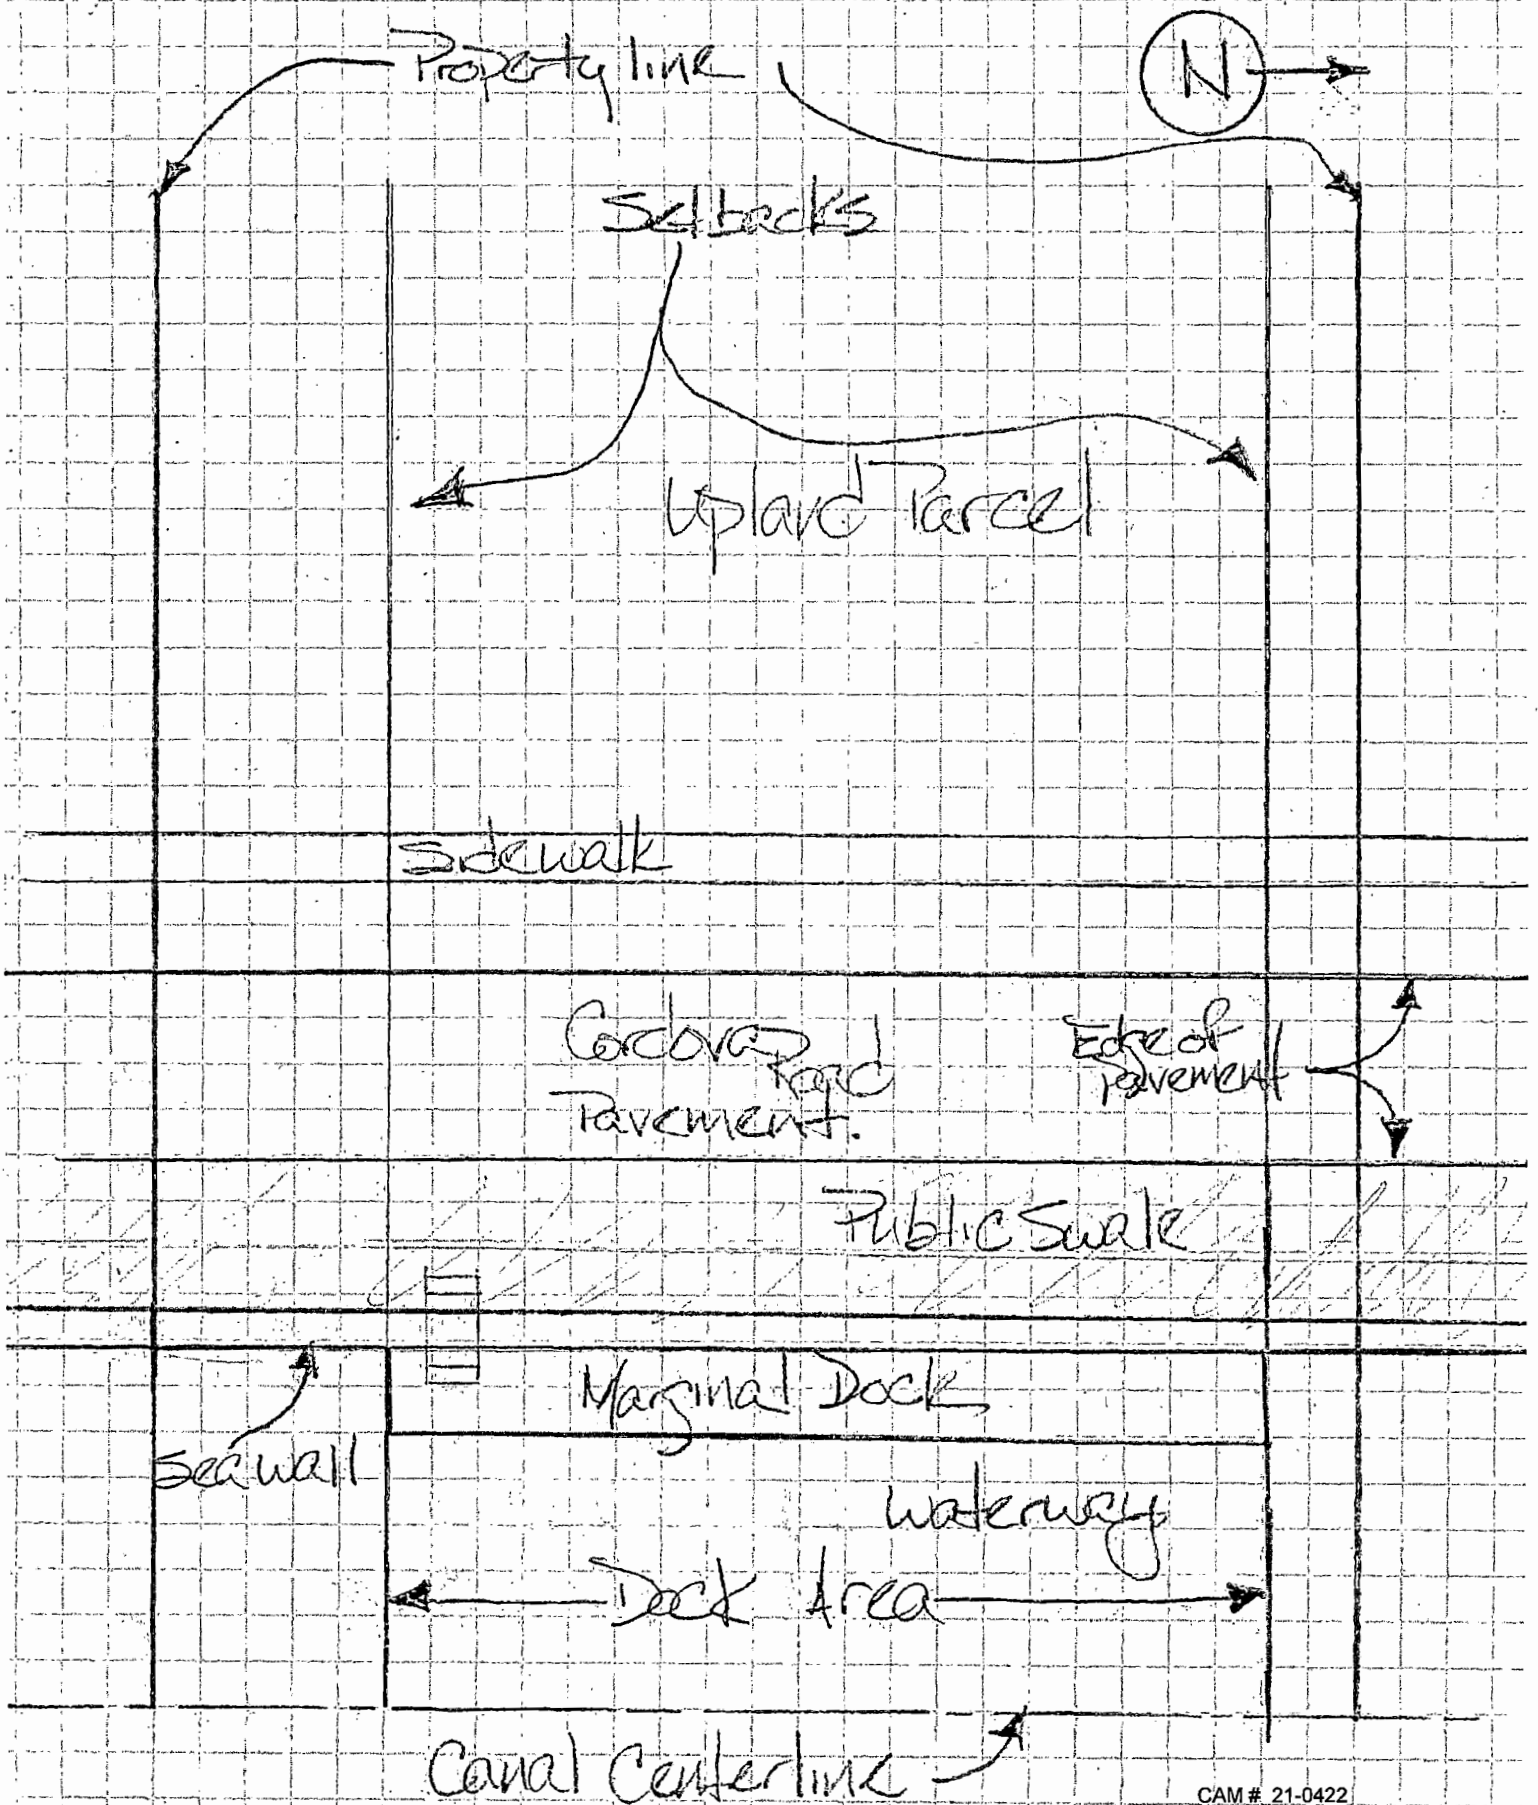 Property line
N
Setbacks
Upland Parcel
Sidewalk
Cordova Road
Pavement.
Edge of
pavement
Public Swale
Marginal Dock
seawall
waterway
Dock Area
Canal Centerline
CAM # 21-0422